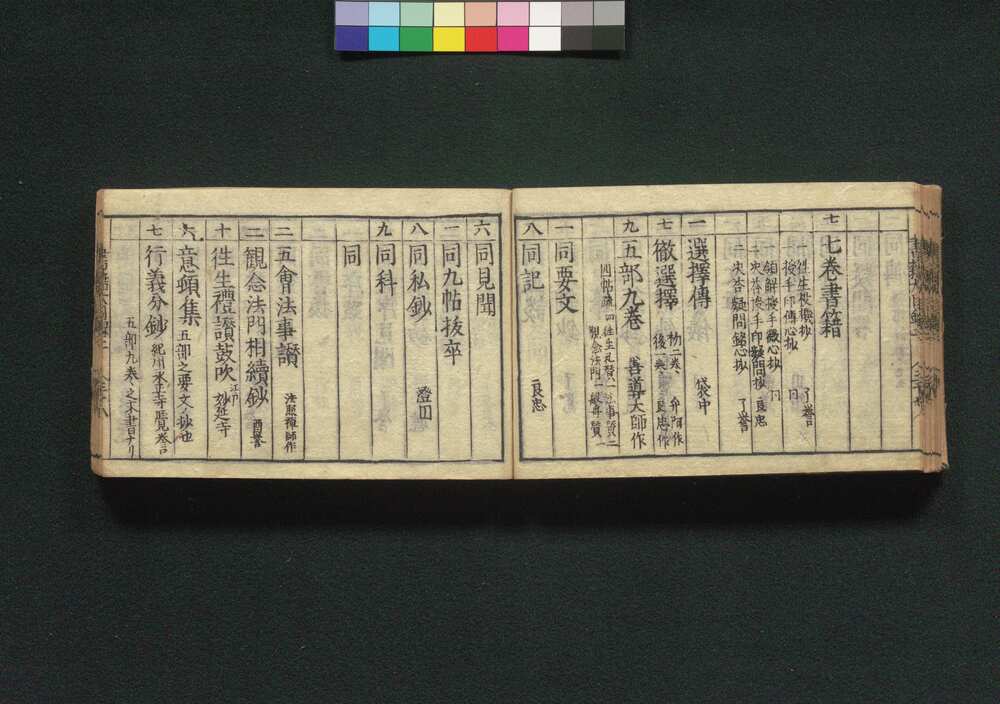 七 七巻書籍
一 往生投機抄
授手印傳心抄 了誉
領解授手徹心抄 同
決答授手印疑問抄 良忠
二 決答疑問銘心抄 了誉
一 選擇傳 袋中
七 徹選擇 初二巻ハ弁阿作 後一巻ハ良忠作
九 五部九巻 善導大師作
四帖疏四 往生礼賛一 法事讃二
観念法門一 般舟賛一
一 同要文
八 同記 良忠
六 同見聞
一 同九帖抜卒
八 同私鈔 澄円
九 同科
同
二 五會法事讃 法照禅師作
二 觀念法門相續鈔 酉誉
十 往生禮讃鼓吹 江戸 妙延寺
六 意頭集 五部之要文ノ抄也
七 行義分鈔 紀州 永正寺 覧誉言
五部九巻之末書ナリ